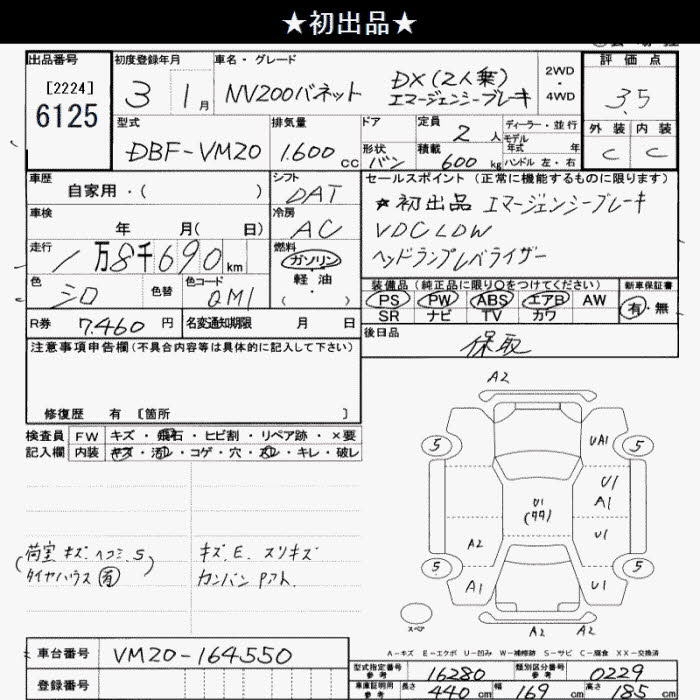 ★初出品★
出品番号
[2224]
6125
初度登録年月
3 1月
車名・グレード
NV200バネット
DX(2人乗)
エマージェンシーブレーキ
2WD
4WD
評価点
3.5
外装 内装
C C
型式
DBF-VM20
排気量
1.600cc
ドア
形状
バン
定員
2人
積載
600kg
ディーラー・並行
モデル
年式 年
ハンドル 左・右
車歴
自家用・( )
シフト
DAT
セールスポイント(正常に機能するものに限ります)
★初出品 エマージェンシーブレーキ
VDC LDW
ヘッドランプレベライザー
車検
年 月( 日)
冷房
AC
走行
1万8千690km
燃料
ガソリン
軽油
( ・ )
色
シロ
色替
色コード
QM1
装備品(純正品に限り○をつけてください)
PS PW ABS エアB AW
SR ナビ TV カワ
新車保証書
有・無
R券
7.460円
名変通知期限 月 日
後日品
保取
注意事項申告欄(不具合内容等は具体的に記入して下さい)
修復歴 有 〔箇所 〕
検査員
記入欄
FW キズ・飛石・ヒビ割・リペア跡・×要
内装 キズ・汚レ・コゲ・穴・スレ・キレ・破レ
(荷室 キズ、ヘコミ、S
タイヤハウス 有)
キズ、E、スリキズ
カンバンアト.
A2
5
5
UA1
U1
A1
U1
(タタ)
U1
A2
5
5
A1
U1
スペア
A2 A2
A-キズ E-エクボ U-凹み W-補修跡 S-サビ C-腐食 XX-交換済
車台番号
VM20-164550
登録番号
型式指定番号
参考
16280
類別区分番号
参考
0229
車庫証明用
参考
長さ 440cm 幅 169cm 高さ 185cm